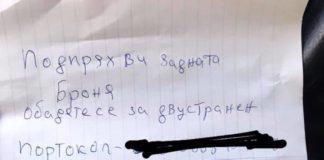 Подпрях Ви задната
Броня
обадетесе за двустранен
портокол-